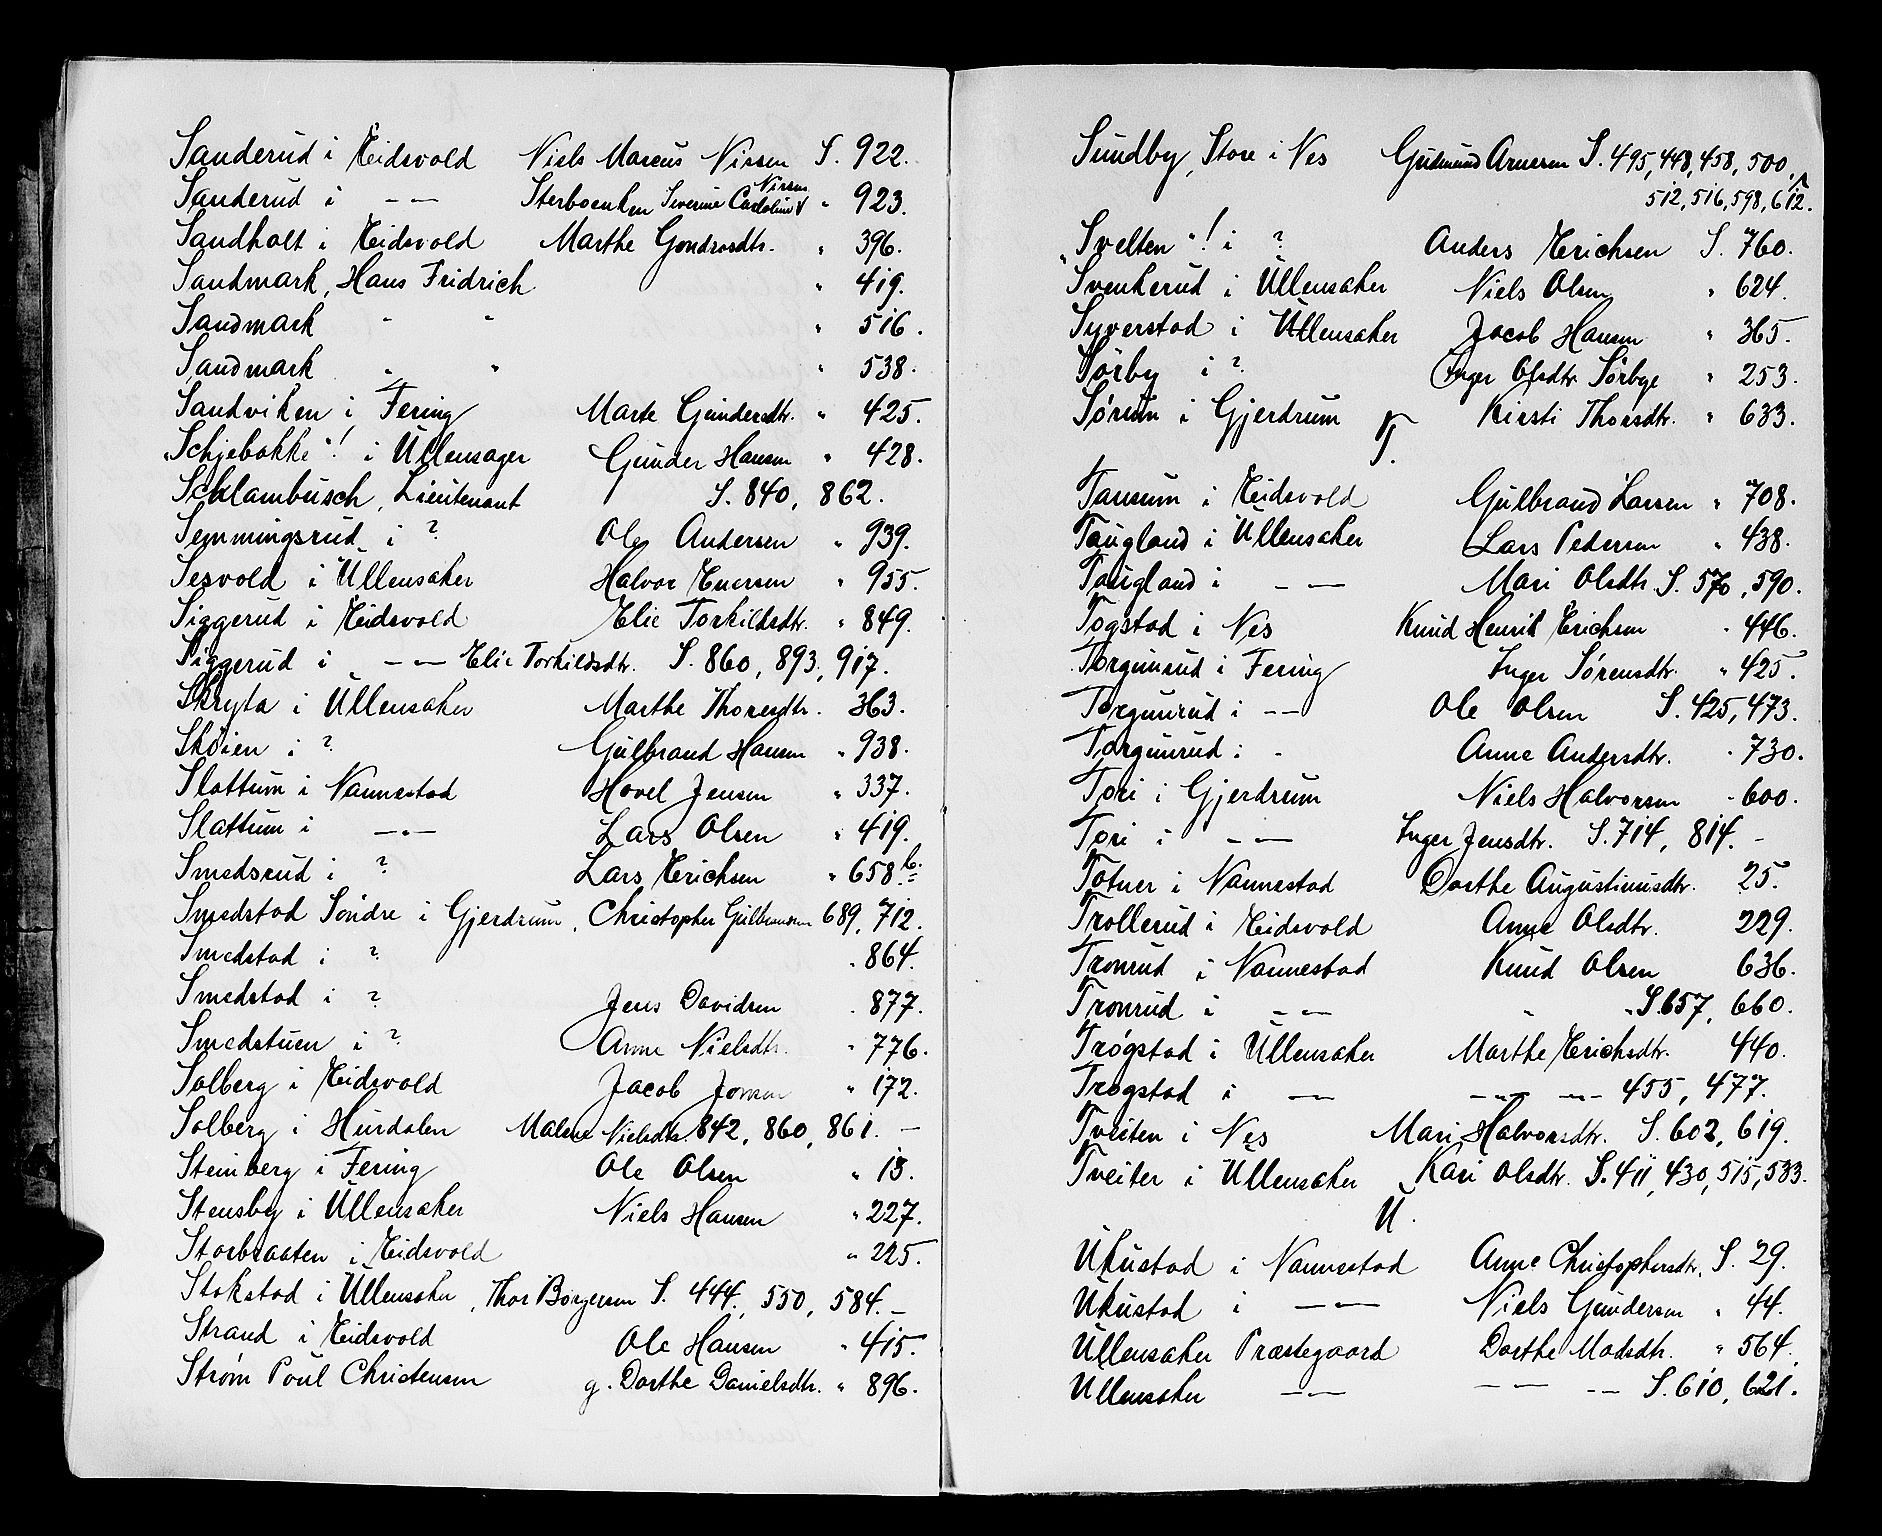 Sanderud i Eidsvold Niels Marcus Nissen S. 922.
Nissen
Sanderud i - - Sterboenken Severine Cartoline " 923.
Sandholt i Eidsvold Marthe Gondrosdtr. " 396.
Sandmark, Hans Fridrich " 419.
Sandmark " " " 516.
Sandmark " " " 538.
Sandviken i Fering Marte Gundersdtr. " 425.
"Schjebakke"! i Ullensager Gunder Hansen " 428.
Schlambusch, Lieutenant S. 840, 862.
Semmingsrud i ? Ole Andersen " 939.
Sesvold i Ullensaker Halvor Enersen " 955.
Siggerud i Eidsvold Elie Torkildsdtr. " 849.
Siggerud i - - Elie Torkildsdtr. S. 860, 893, 917.
Skryta i Ullensaker Marthe Thoresdtr. 363.
Skøien i ? Gulbrand Hansen " 938.
Slattum i Nannestad Hovel Jensen " 337.
Slattum i - " - Lars Olsen " 419.
Smedsrud i ? Lars Erichsen " 658 b.
Smedstad Søndre i Gjerdrum, Christopher Gulbransen 689, 712.
Smedstad i ? " 864.
Smedstad i ? Jens Davidsen " 877.
Smedstuen i ? Anne Nielsdtr. " 776.
Solberg i Eidsvold Jacob Jonsen " 172.
Solberg i Hurdalen Malene Nielsdtr 842, 860, 861. -
Steinberg i Fering Ole Olsen " 13.
Stensby i Ullensaker Niels Hansen " 227.
Storbraaten i Eidsvold " 225.
Stokstad i Ullensaker, Thor Børgersen S. 444, 550, 584. -
Strand i Eidsvold Ole Hansen " 415.
Strøm Poul Christensen g. Dorthe Danielsdtr. " 896.
Sundby, Store i Nes Gudmund Arnesen S. 495, 448, 458, 500,
512, 516, 598, 612.
"Svelten"! i ? Anders Erichsen S. 760.
Svenkerud i Ullensaker Niels Olsen " 624.
Syverstad i Ullensaker Jacob Hansen " 365.
Sørby i ? Inger Olsdtr Sørbye " 253.
Sørum i Gjerdrum Kirsti Thorsdtr. " 633.
T.
Tansum i Eidsvold Gulbrand Larsen " 708.
Taugland i Ullensaker Lars Pedersen " 438.
Taugland i - - Mari Olsdtr. S. 576, 590.
Togstad i Nes Knud Henrik Erichsen " 446.
Torgunrud i Fering Inger Sørensdtr. " 425.
Torgunrud i - - Ole Olsen S. 425, 473.
Torgunrud i - Anne Andersdtr. " 730.
Tori i Gjerdrum Niels Halvorsen " 600.
Tori i - - Inger Jensdtr. S. 714, 814. -
Totner i Nannestad Dorthe Augustinusdtr. 25.
Trollerud i Eidsvold Anne Olsdtr. 229.
Tronrud i Nannestad Knud Olsen 636.
Tronrud i - - " " S. 657, 660.
Trøgstad i Ullensaker Marthe Erichsdtr. 440.
Trøgstad i - - - - 455, 477.
Tveiten i Nes Mari Halvorsdtr. S. 602, 619.
Tveiter i Ullensaker Kari Olsdtr. S. 411, 430, 515, 533.
U.
Ukustad i Nannestad Anne Christophersdtr. S. 29.
Ukustad i - - Niels Gundersen " 44.
Ullensaker Præstegaard Dorthe Madsdtr. " 564.
Ullensaker - - - - - S. 610, 621.